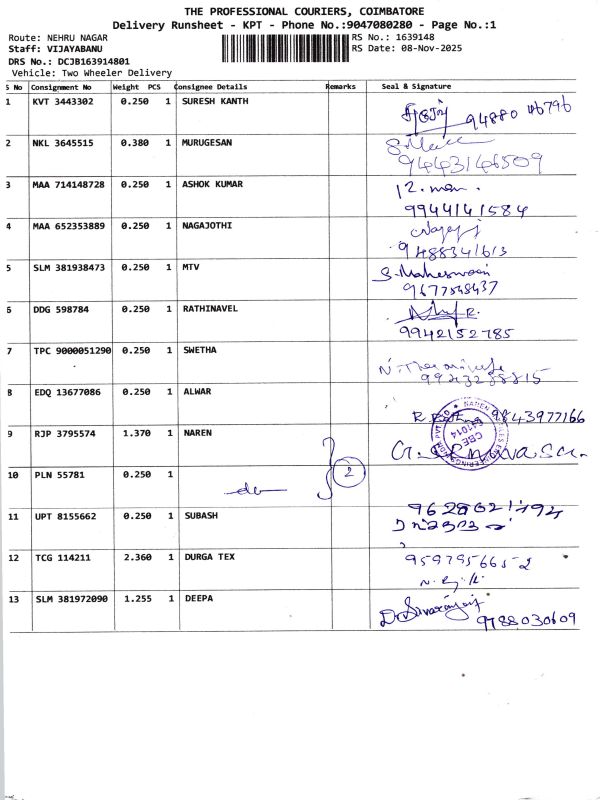 THE PROFESSIONAL COURIERS, COIMBATORE
Delivery Runsheet - KPT - Phone No.:9047080280 - Page No.:1
Route: NEHRU NAGAR RS No.: 1639148
Staff: VIJAYABANU RS Date: 08-Nov-2025
DRS No.: DCJB163914801
Vehicle: Two Wheeler Delivery
S No Consignment No Weight PCS Consignee Details Remarks Seal & Signature
1 KVT 3443302 0.250 1 SURESH KANTH
94880 46796
2 NKL 3645515 0.380 1 MURUGESAN
9443146509
3 MAA 714148728 0.250 1 ASHOK KUMAR
9944141584
4 MAA 652353889 0.250 1 NAGAJOTHI
9488341613
5 SLM 381938473 0.250 1 MTV S. Maheswari
6 DDG 598784 0.250 1 RATHINAVEL
9942152785
7 TPC 9000051290 0.250 1 SWETHA
8 EDQ 13677086 0.250 1 ALWAR
9843977166
9 RJP 3795574 1.370 1 NAREN
10 PLN 55781 0.250 1 2
11 UPT 8155662 0.250 1 SUBASH
12 TCG 114211 2.360 1 DURGA TEX
9597956652
13 SLM 381972090 1.255 1 DEEPA
9788030609